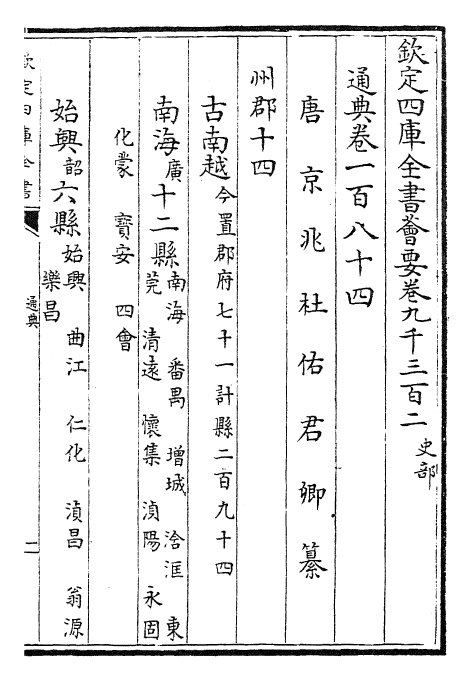 欽定四庫全書薈要卷九千三百二 史部
通典卷一百八十四
唐京兆杜佑君卿纂
州郡十四
古南越 今置郡府七十一計縣二百九十四
南海 廣 十二縣 南海 番禺 增城 洽洭 東莞 清遠 懷集 湞陽 永固
化蒙 寶安 四會
始興 韶 六縣 始興 曲江 仁化 湞昌 翁源 樂昌
欽定四庫全書
通典
二